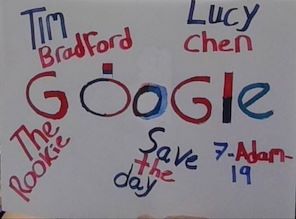 Tim
Bradford
Lucy
Chen
GöoGle
The
Rookie
Save
the
day
7-Adam-
19